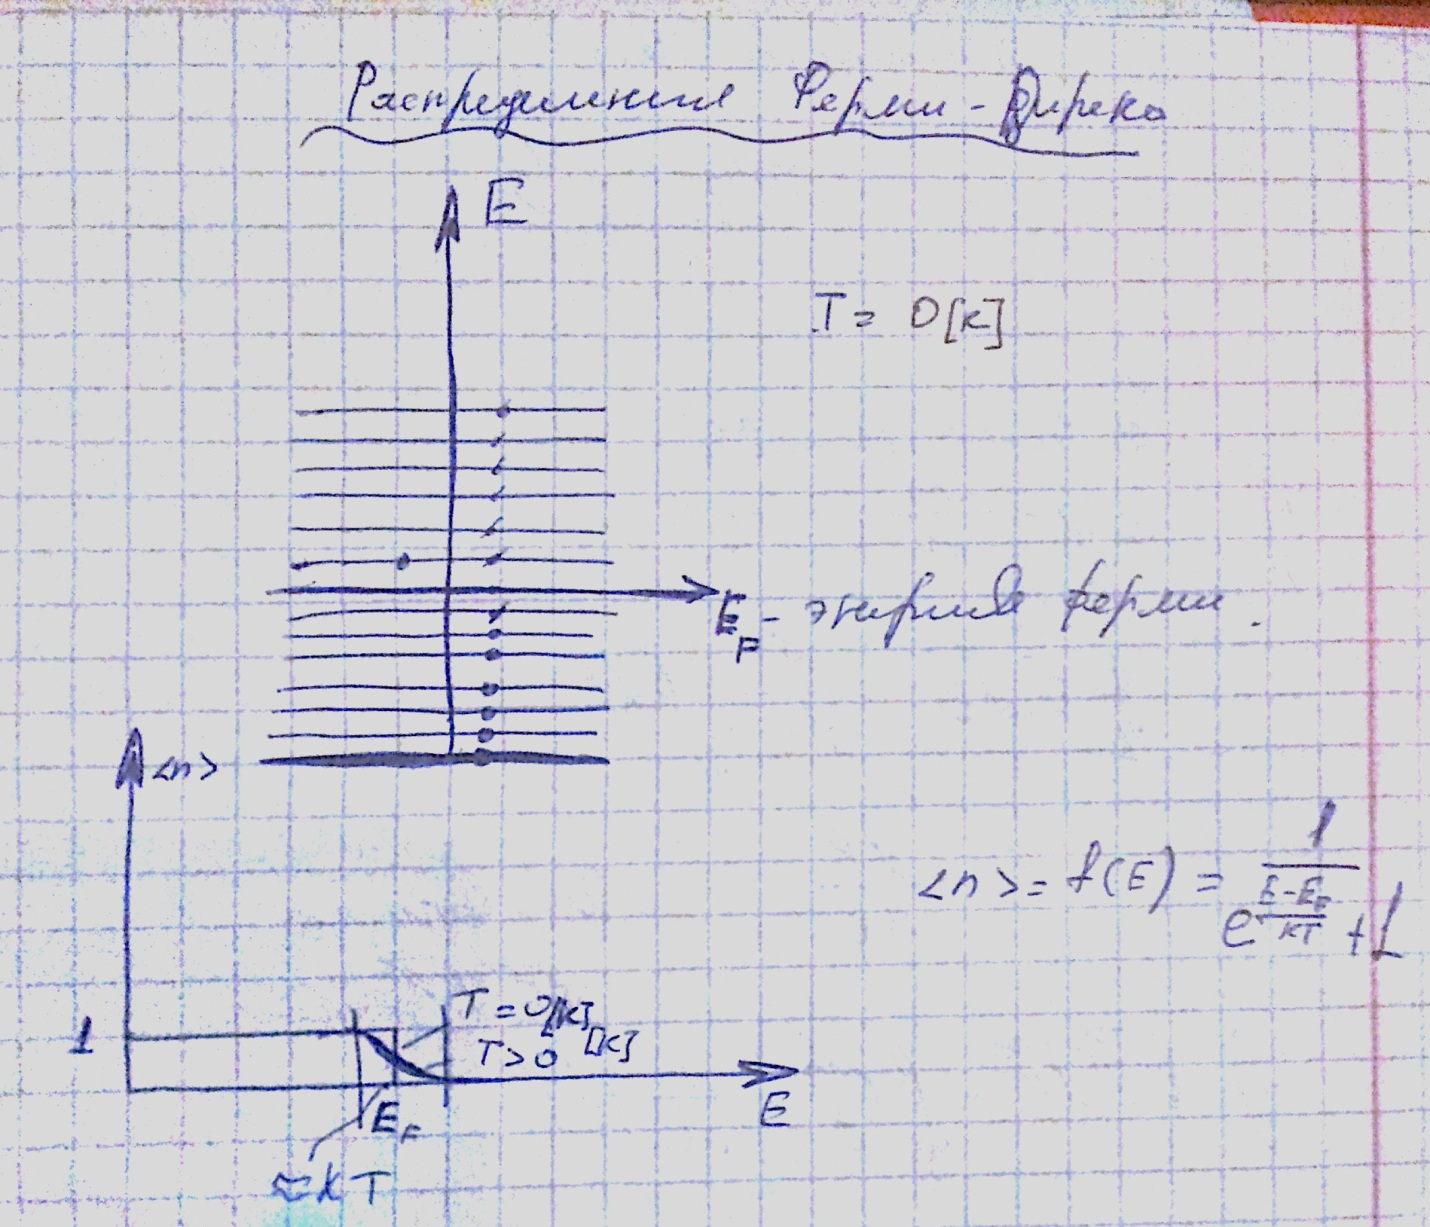 Распределение Ферми-Дирака
E
T = 0[К]
E_F - энергия ферми.
<n>
<n> = f(E) = 1 / (e^((E-E_F)/kT) + 1)
1
T = 0[К]
T > 0 [К]
E_F
E
≈kT